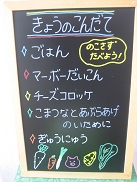 きょうのこんだて
のこさず
たべよう!
ごはん
マーボーだいこん
チーズコロッケ
こまつなとあぶらあげ
のいために
ぎゅうにゅう